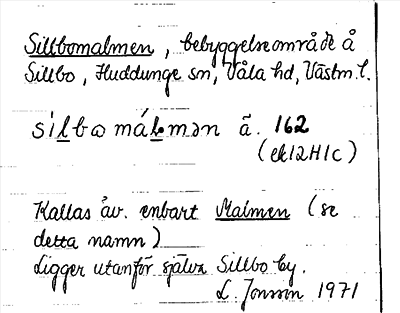 Sillbomalmen, bebyggelseområde å
Sillbo, Huddunge sn, Våla hd, Västm. l.
sìlbω málmən ā. 162
(ek 12H1c)
Kallas äv. enbart Malmen (se
detta namn)
Ligger utanför själva Sillbo by.
L. Jonsson 1971